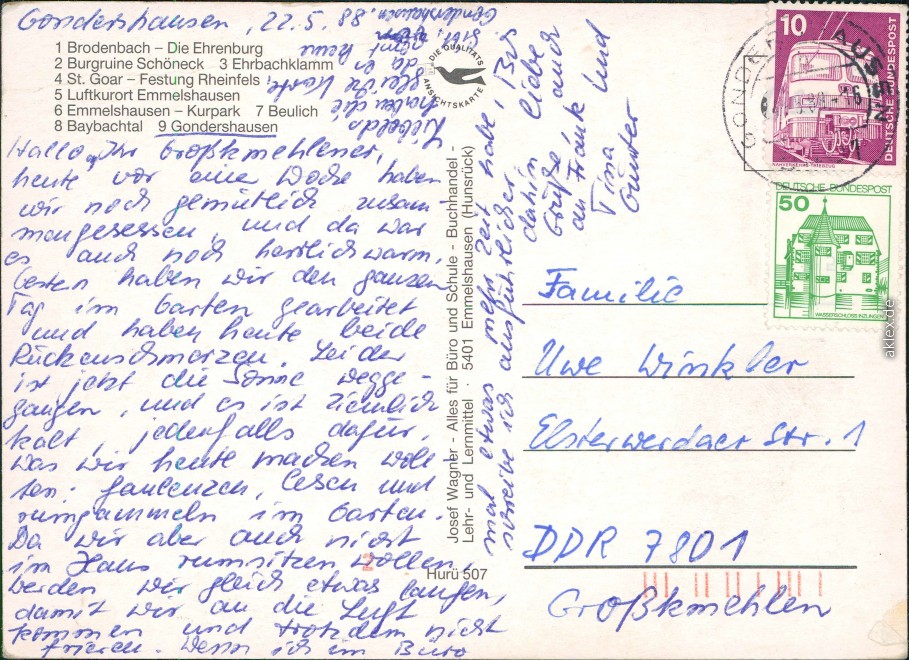 Gondershausen, 22.5.88.
1 Brodenbach – Die Ehrenburg
2 Burgruine Schöneck 3 Ehrbachklamm
4 St. Goar – Festung Rheinfels
5 Luftkurort Emmelshausen
6 Emmelshausen – Kurpark 7 Beulich
8 Baybachtal 9 Gondershausen
Hallo, Ihr Großkmehlener,
heute vor eine Woche haben
wir noch gemütlich zusam-
mengesessen, und da war
es auch noch herrlich warm.
Gestern haben wir den ganzen
Tag im Garten gearbeitet
und haben heute beide
Rückenschmerzen. Leider
ist jetzt die Sonne wegge-
gangen, und es ist ziemlich
kalt, jedenfalls dafür,
was wir heute machen woll-
ten: faulenzen, lesen und
rumgammeln im Garten.
Da wir aber auch nicht
im Haus rumsitzen wollen,
werden wir gleich etwas laufen,
damit wir an die Luft
kommen und trotzdem nicht
frieren. Wenn ich im Büro
mal etwas mehr Zeit habe,
schreibe ich ausführlicher. Bis
dahin liebe
Grüße auch
an Frank und
Tina
Günter
die Karte
da in
neu
gibt
Gondershausen
DIE QUALITÄTS
ANSICHTSKARTE
Josef Wagner - Alles für Büro und Schule - Buchhandel -
Lehr- und Lernmittel · 5401 Emmelshausen (Hunsrück)
Hurü 507
2
10
DEUTSCHE BUNDESPOST
NAHVERKEHRS-TRIEBZUG
DEUTSCHE BUNDESPOST
50
WASSERSCHLOSS INZLINGEN
GONDERSHAUSEN
Familie
Uwe Winkler
Elsterwerdaer Str. 1
DDR 7801
Großkmehlen
aklex.de